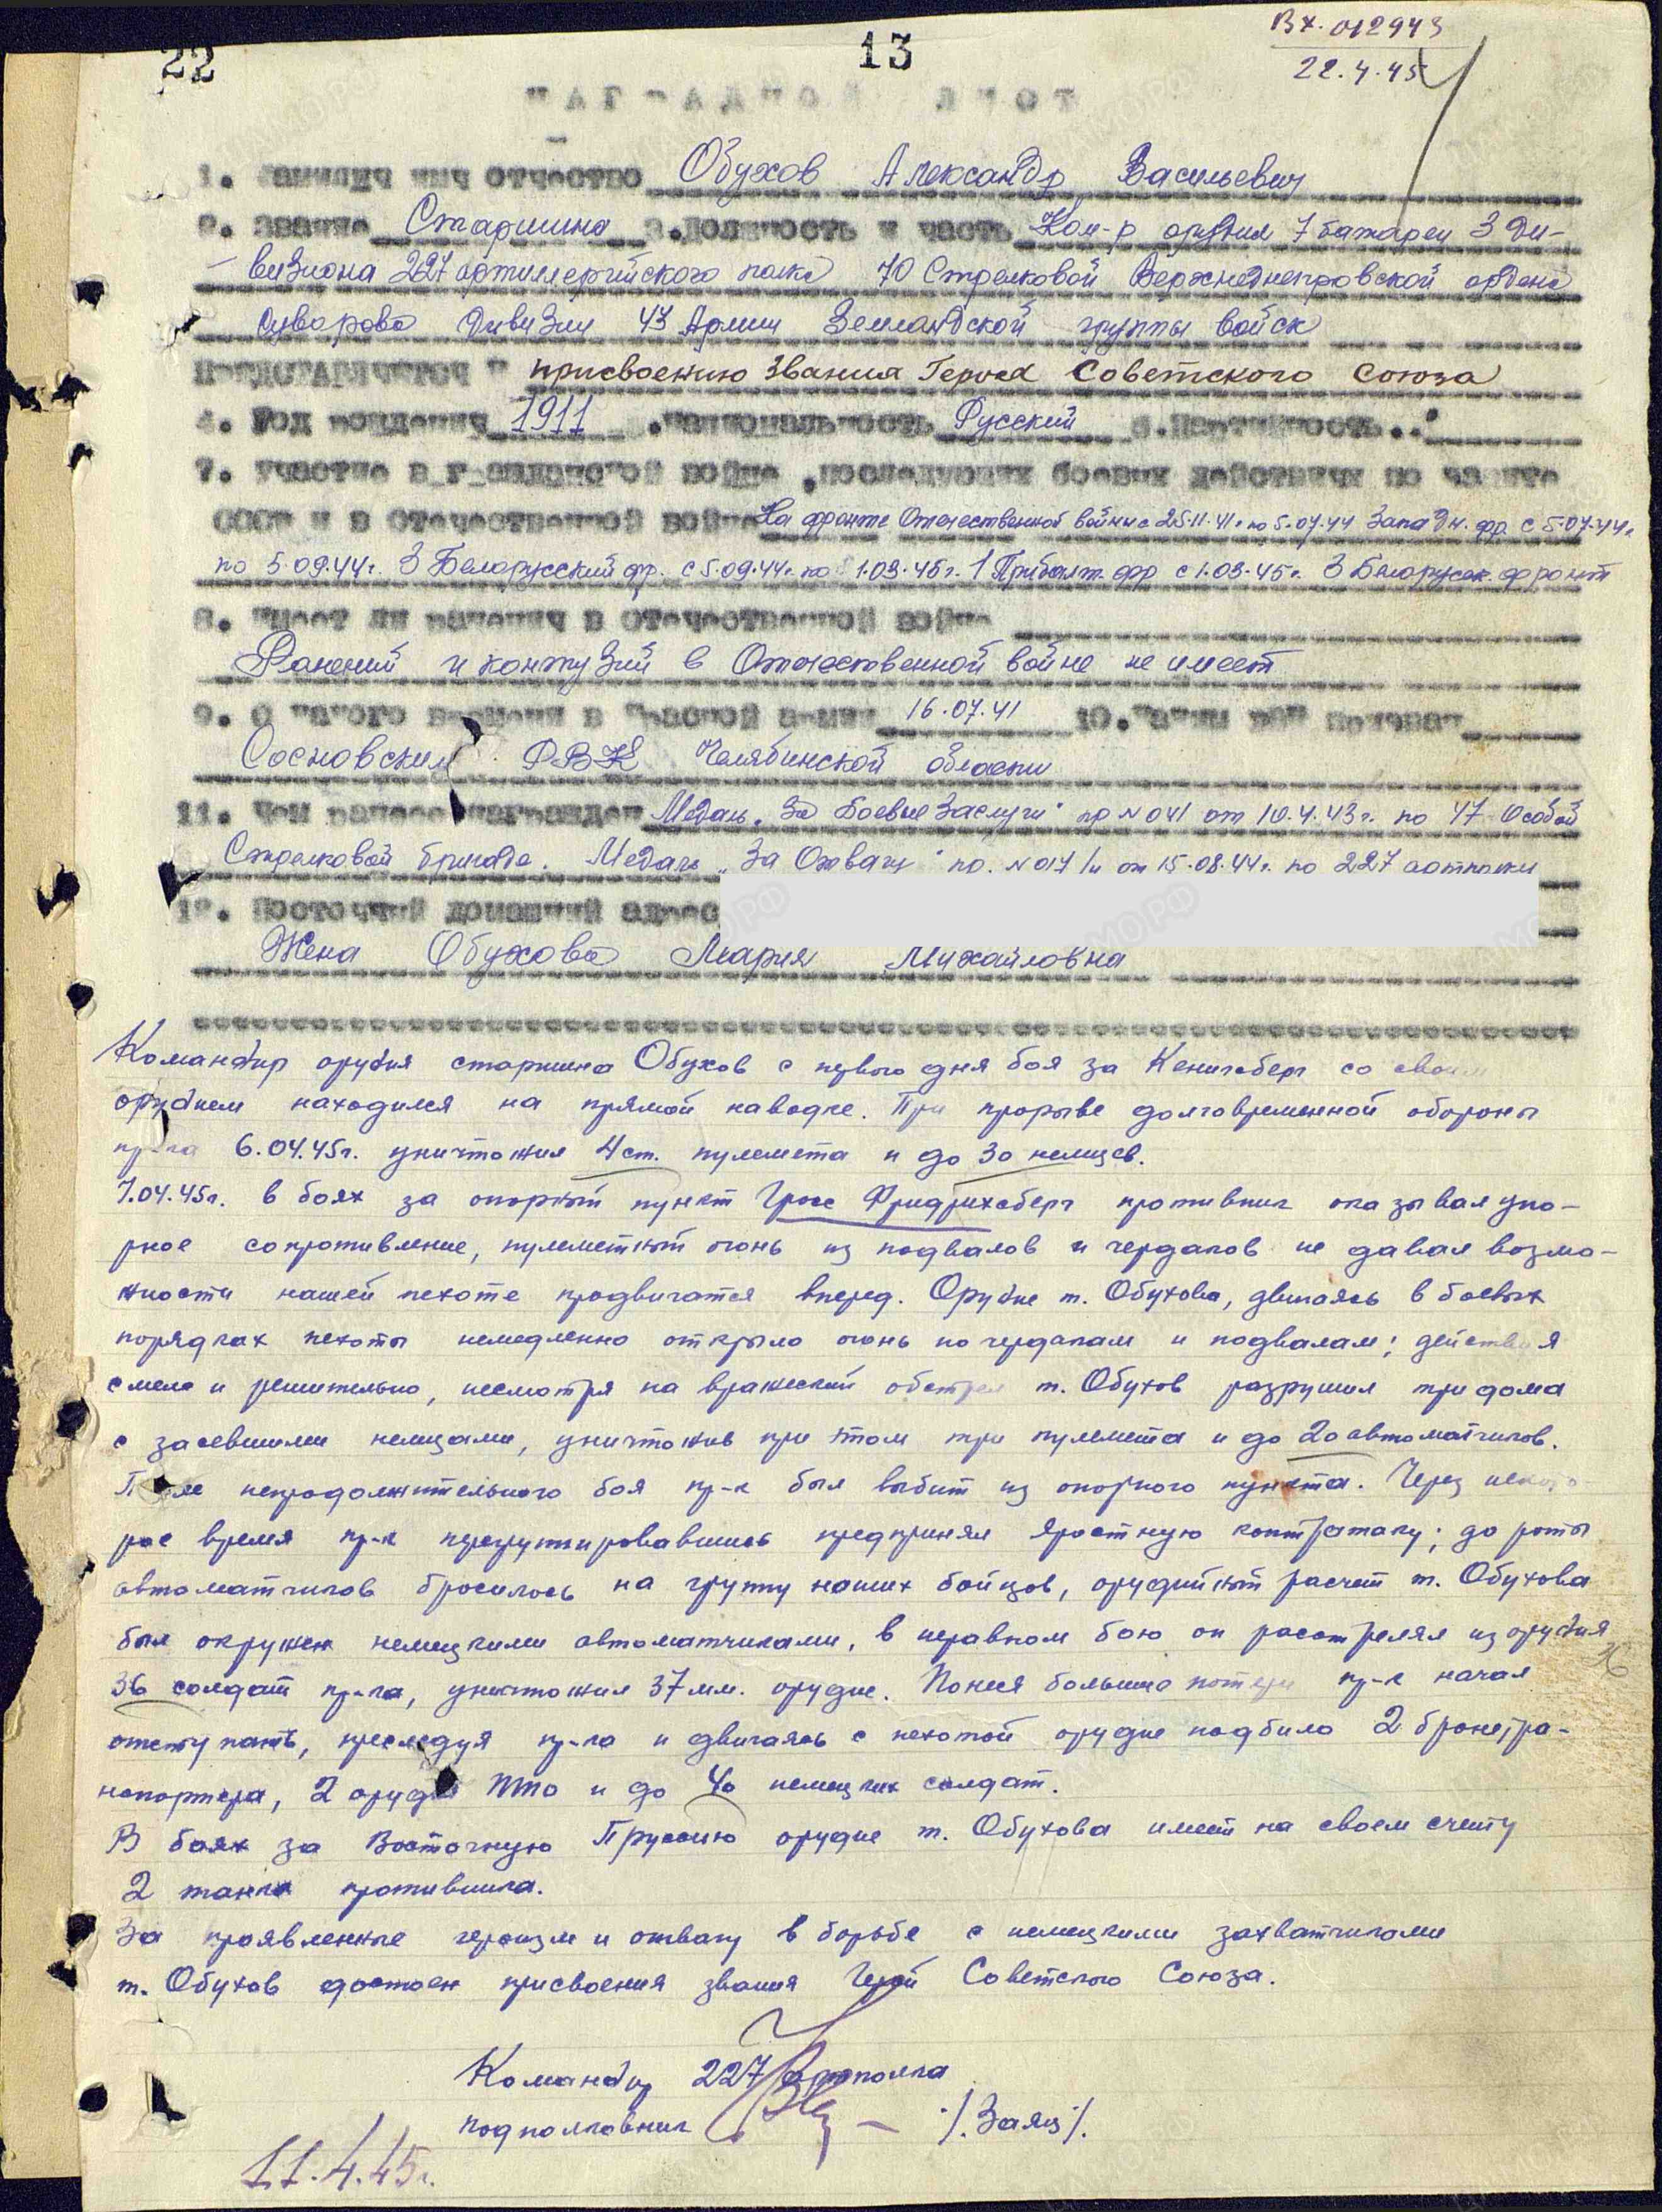 Вх. 012943
22.4.45
22
13
НАГРАДНОЙ ЛИСТ
1. Фамилия имя отчество Обухов Александр Васильевич
2. Звание Старшина 3. Должность и часть Ком-р орудия 7 батареи 3 ди-
визиона 227 артиллерийского полка 70 Стрелковой Верхнеднепровской ордена
Суворова дивизии 43 Армии Земландской группы войск
Представляется к присвоению звания Героя Советского Союза
4. Год рождения 1911 5. Национальность Русский 6. Партийность
7. Участие в гражданской войне, последующих боевых действиях по защите
СССР и в Отечественной войне На фронте Отечественной войны с 25.11.41г по 5.07.44 Западн. фр. с 5.07.44г.
по 5.09.44г. 3 Белорусский фр. с 5.09.44г. по 1.03.45г. 1 Прибалт. фр с 1.03.45г. 3 Белорусск. фронт
8. Имеет ли ранения в Отечественной войне
Ранений и контузий в Отечественной войне не имеет
9. С какого времени в Красной армии 16.07.41 10. Каким РВК призван
Сосновским РВК Челябинской области
11. Чем ранее награжден Медаль „За боевые заслуги" пр N 041 от 10.4.43г. по 47 Особой
Стрелковой бригаде. Медаль „За Отвагу" пр. N 017/н от 15.08.44г. по 227 артполку
12. Постоянный домашний адрес
Жена Обухова Мария Михайловна
Командир орудия старшина Обухов с первого дня боя за Кенигсберг со своим
орудием находился на прямой наводке. При прорыве долговременной обороны
пр-ка 6.04.45г. уничтожил 4 ст. пулемета и до 30 немцев.
7.04.45г. в боях за опорный пункт Гросс Фридрихсберг противник оказывал упо-
рное сопротивление, пулеметный огонь из подвалов и чердаков не давал возмо-
жности нашей пехоте продвигатся вперед. Орудие т. Обухова, двигаясь в боевых
порядках пехоты немедленно открыло огонь по чердакам и подвалам; действуя
смело и решительно, несмотря на вражеский обстрел т. Обухов разрушил три дома
с засевшими немцами, уничтожив при этом три пулемета и до 20 автоматчиков.
После непродолжительного боя пр-к был выбит из опорного пункта. Через некото-
рое время пр-к перегруппировавшись предпринял яростную контратаку; до роты
автоматчиков бросилось на группу наших бойцов, орудийный расчет т. Обухова
был окружен немецкими автоматчиками, в неравном бою он расстрелял из орудия
36 солдат пр-ка, уничтожил 37 мм. орудие. Понеся большие потери пр-к начал
отступать, преследуя пр-ка и двигаясь с пехотой орудие подбило 2 бронетра-
нспортера, 2 орудия ПТО и до 40 немецких солдат.
В боях за Восточную Пруссию орудие т. Обухова имеет на своем счету
2 танка противника.
За проявленные героизм и отвагу в борьбе с немецкими захватчиками
т. Обухов достоен присвоения звания Герой Советского Союза.
Командир 227 артполка
подполковник /Заяц/.
11.4.45г.
36